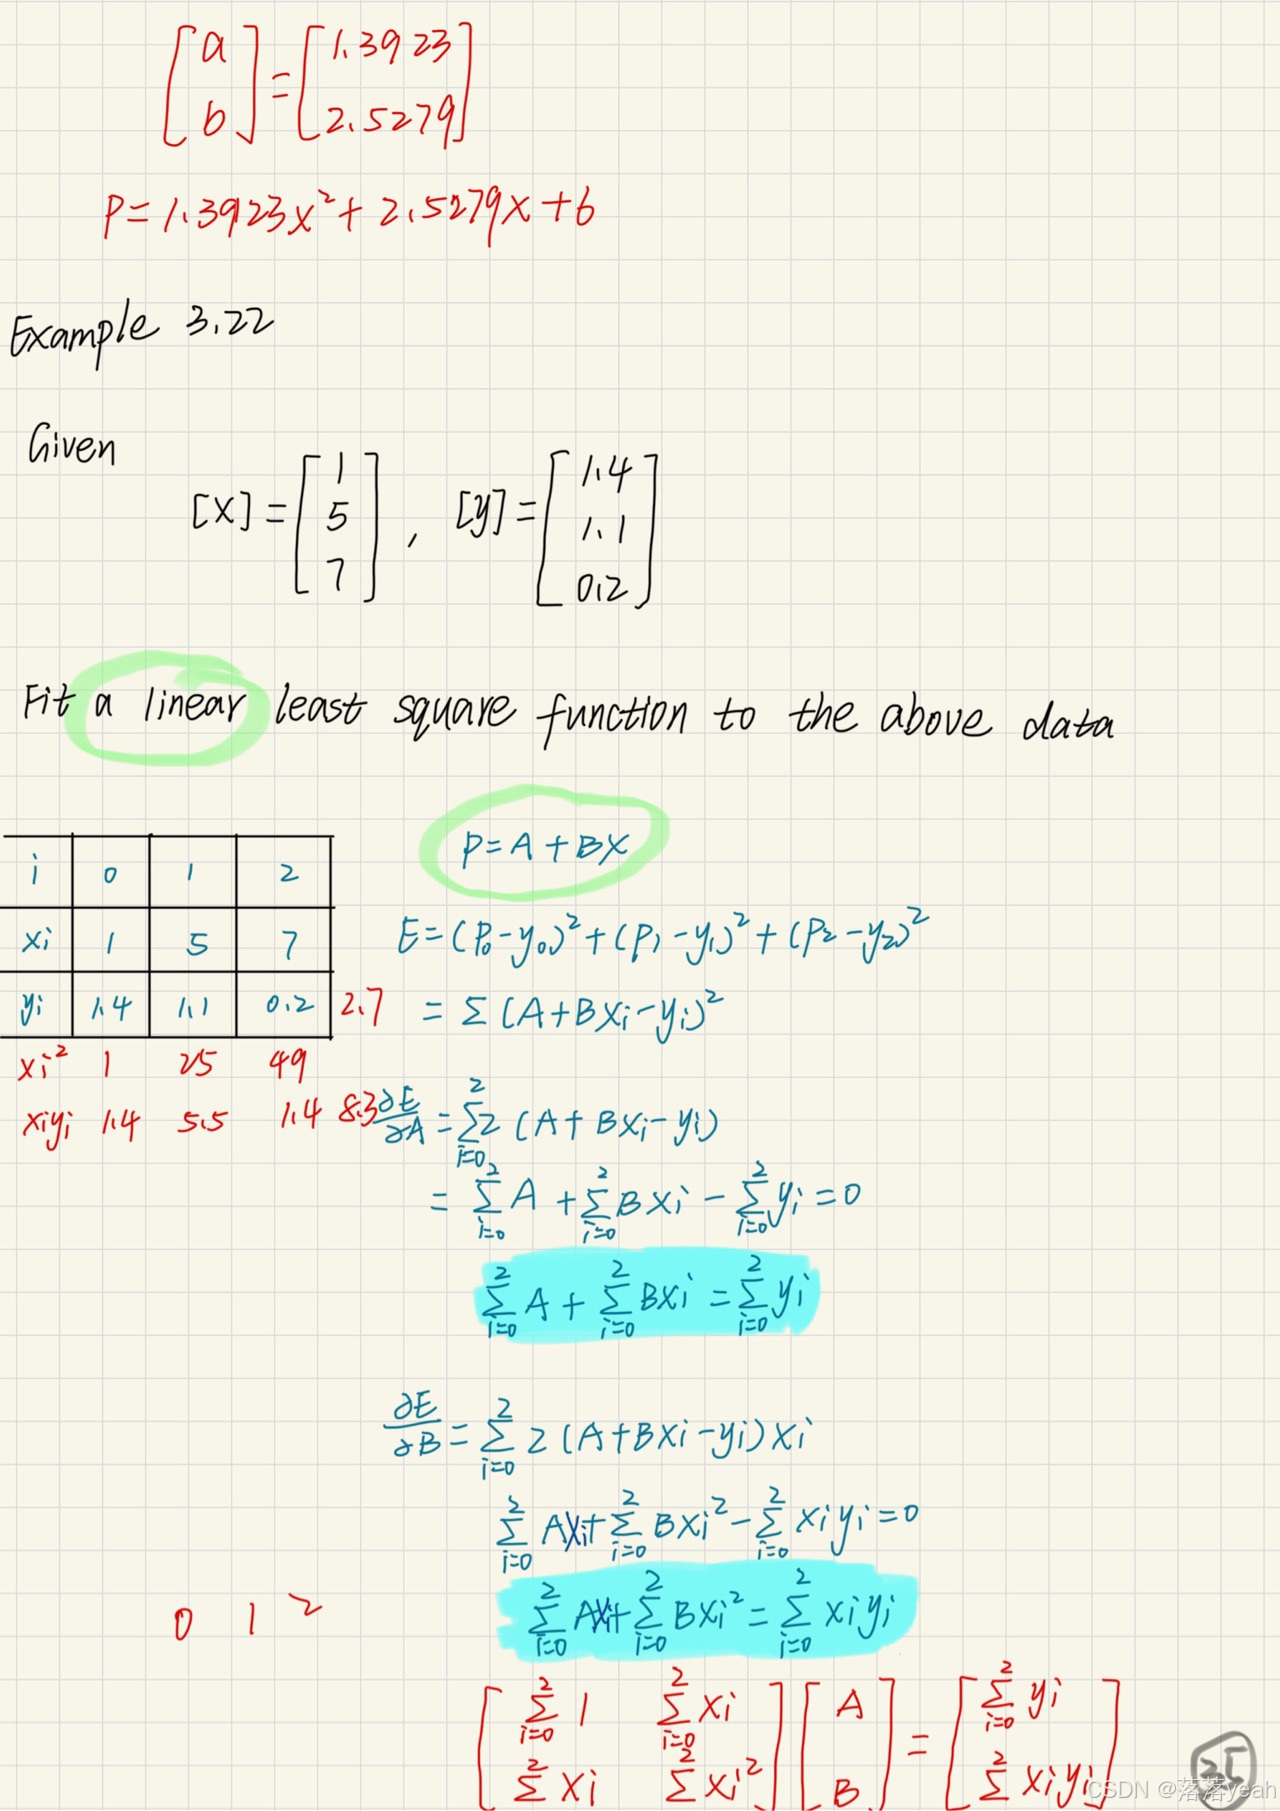 [a b] = [1.3923 2.5279]
P=1.3923x²+2.5279x+6
Example 3.22
Given
[x]=[1 5 7], [y]=[1.4 1.1 0.2]
Fit a linear least square function to the above data
P=A+Bx
i 0 1 2
xi 1 5 7
yi 1.4 1.1 0.2 2.7
xi² 1 25 49
xiyi 1.4 5.5 1.4 8.3
E=(P₀-y₀)²+(P₁-y₁)²+(P₂-y₂)²
=Σ(A+Bxi-yi)²
∂E/∂A=Σ_{i=0}^{2}2(A+Bxi-yi)
=Σ_{i=0}^{2}A+Σ_{i=0}^{2}Bxi-Σ_{i=0}^{2}yi=0
Σ_{i=0}^{2}A+Σ_{i=0}^{2}Bxi=Σ_{i=0}^{2}yi
∂E/∂B=Σ_{i=0}^{2}2(A+Bxi-yi)xi
Σ_{i=0}^{2}Axi+Σ_{i=0}^{2}Bxi²-Σ_{i=0}^{2}xiyi=0
0 1 2
Σ_{i=0}^{2}Axi+Σ_{i=0}^{2}Bxi²=Σ_{i=0}^{2}xiyi
[Σ_{i=0}^{2}1 Σ_{i=0}^{2}xi] [A] = [Σ_{i=0}^{2}yi]
[Σ^{2}xi Σ^{2}xi²] [B] [Σ^{2}xiyi]
CSDN @落落yeah